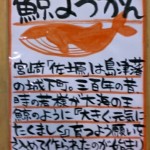 鯨ようかん
宮崎「佐土原」は島津藩
の城下町。三百年の昔
時の若様が大海の王
鯨のように『大きく元気に
たくましく』なってほしいと願いを
込めて作られたのがはじまり